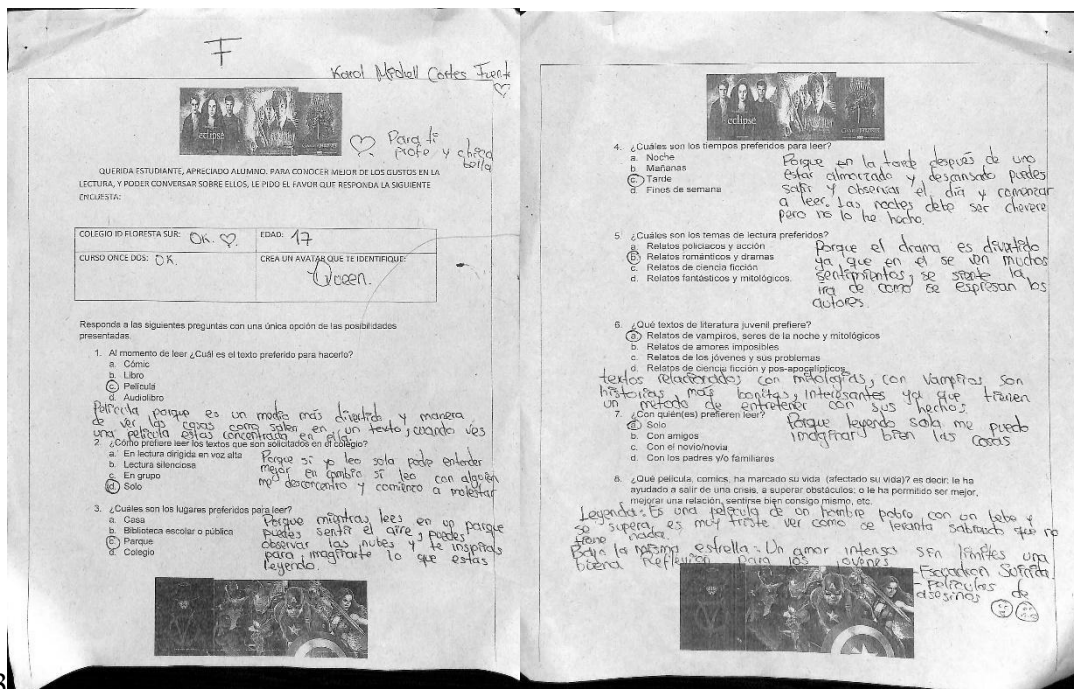 F
Karol Michell Cortes Fuent
eclipse
Para ti
profe y chica
bella
QUERIDA ESTUDIANTE, APRECIADO ALUMNO. PARA CONOCER MEJOR DE LOS GUSTOS EN LA
LECTURA, Y PODER CONVERSAR SOBRE ELLOS, LE PIDO EL FAVOR QUE RESPONDA LA SIGUIENTE
ENCUESTA:
COLEGIO ID FLORESTA SUR: OK. ♡. EDAD: 17
CURSO ONCE DOS: OK. CREA UN AVATAR QUE TE IDENTIFIQUE:
Queen.
Responda a las siguientes preguntas con una única opción de las posibilidades
presentadas.
1. Al momento de leer ¿Cuál es el texto preferido para hacerlo?
a. Cómic
b. Libro
c. Película
d. Audiolibro
Pelicula porque es un modio más divertido, y manera
de ver las cosas como salen en un texto, cuando ves
una pelicula estas concentrada en ella.
2. ¿Cómo prefiere leer los textos que son solicitados en el colegio?
a. En lectura dirigida en voz alta
b. Lectura silenciosa
c. En grupo
d. Solo
Porque si yo leo sola podre entender
mejor en cambio si leo con alguien
me desconcentro y comienzo a molestar
3. ¿Cuáles son los lugares preferidos para leer?
a. Casa
b. Biblioteca escolar o pública
c. Parque
d. Colegio
Porque mientras lees en un parque
puedes sentir el aire, puedes
observar las nubes y te inspiras
para imaginarte lo que estas
leyendo.
eclipse
4. ¿Cuáles son los tiempos preferidos para leer?
a. Noche
b. Mañanas
c. Tarde
d. Fines de semana
Porque en la tarde después de uno
estar almorzado y descansado puedes
salir y observar el día y comenzar
a leer. Las noches debe ser chevere
pero no lo he hecho.
5. ¿Cuáles son los temas de lectura preferidos?
a. Relatos policiacos y acción
b. Relatos románticos y dramas
c. Relatos de ciencia ficción
d. Relatos fantásticos y mitológicos.
Porque el drama es divertido
ya que en el se ven muchos
sentimientos, se siente la
ira de como se espresan los
autores.
6. ¿Qué textos de literatura juvenil prefiere?
a. Relatos de vampiros, seres de la noche y mitológicos
b. Relatos de amores imposibles
c. Relatos de los jóvenes y sus problemas
d. Relatos de ciencia ficción y pos-apocalípticos
textos relacionados con mitologías, con vampiros son
historias más bonitas, interesantes ya que tienen
un metodo de entretener con sus hechos.
7. ¿Con quién(es) prefieren leer?
a. Solo
b. Con amigos
c. Con el novio/novia
d. Con los padres y/o familiares
Porque leyendo sola me puedo
imaginar bien las cosas
8. ¿Qué película, comics, ha marcado su vida (afectado su vida)? es decir: le ha
ayudado a salir de una crisis, a superar obstáculos; o le ha permitido ser mejor,
mejorar una relación, sentirse bien consigo mismo, etc.
Legenda: Es una pelicula de un hombre pobre con un bebe y
se supera, es muy triste ver como se levanta sabiendo que no
tiene nada.
Bajo la misma estrella: Un amor intenso sin limites una
buena reflexión para los jovenes
-Escuadron Suicida
-Peliculas de
asesinos